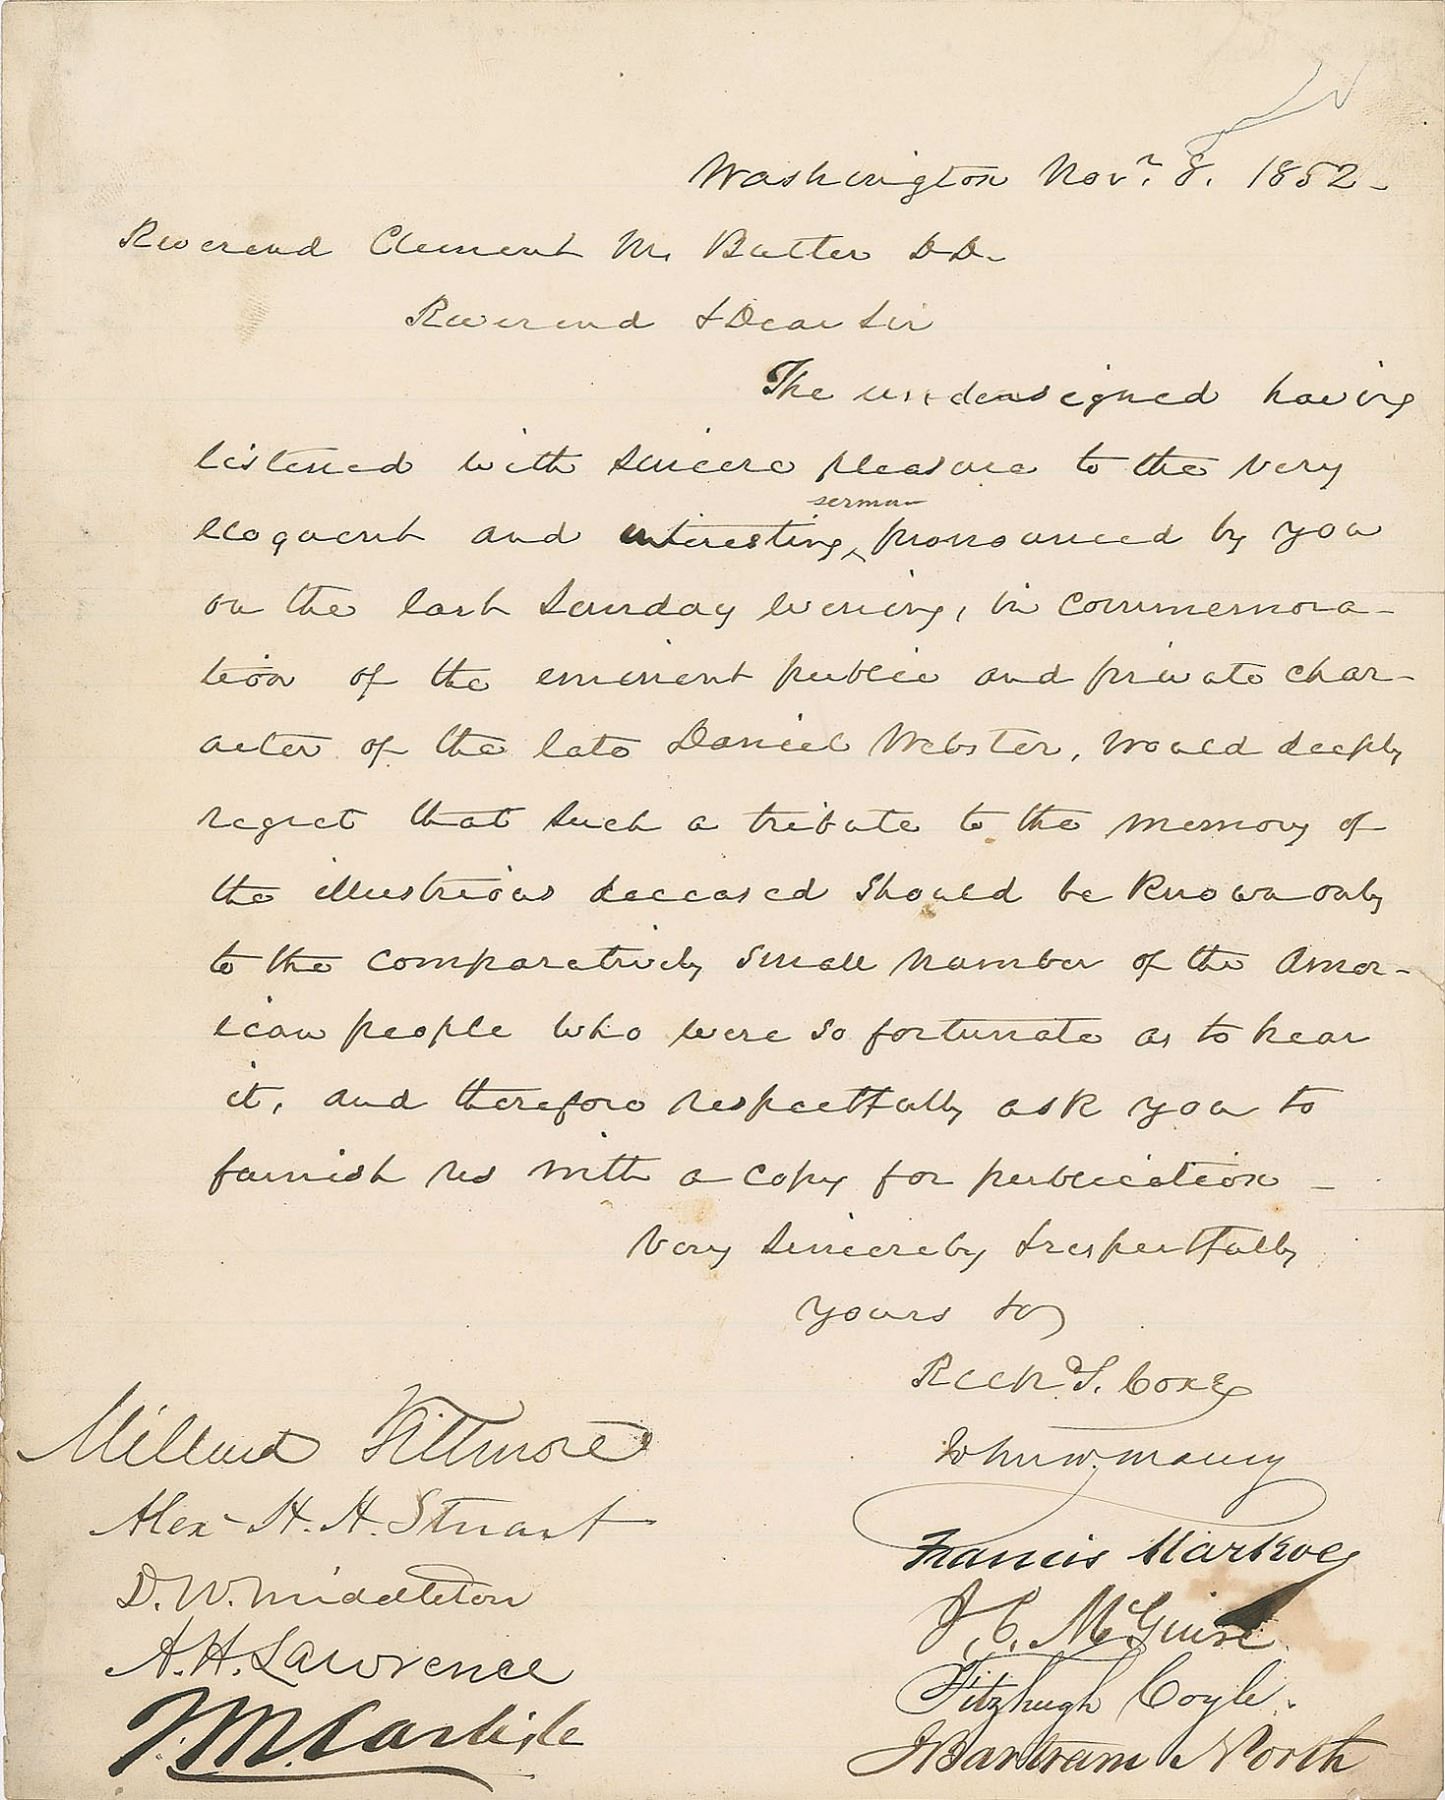 Washington Novr. 8. 1852-
Reverend Clement M. Butler D.D.
Reverend & Dear Sir
The undersigned having
listened with sincere pleasure to the very
eloquent and interesting sermon pronounced by you
on the last Sunday evening, in commemora-
tion of the eminent public and private char-
acter of the late Daniel Webster, would deeply
regret that such a tribute to the memory of
the illustrious deceased should be known only
to the comparatively small number of the Amer-
ican people who were so fortunate as to hear
it, and therefore respectfully ask you to
furnish us with a copy for publication -
Very sincerely & respectfully
yours
Richd. S. Coxe
John W. Maury
Francis Markoe
J. C. McGuire
Fitzhugh Coyle.
J Bartram North
Millard Fillmore
Alex. H. H. Stuart
D. W. Middleton
A. H. Lawrence
J. M. Carlisle